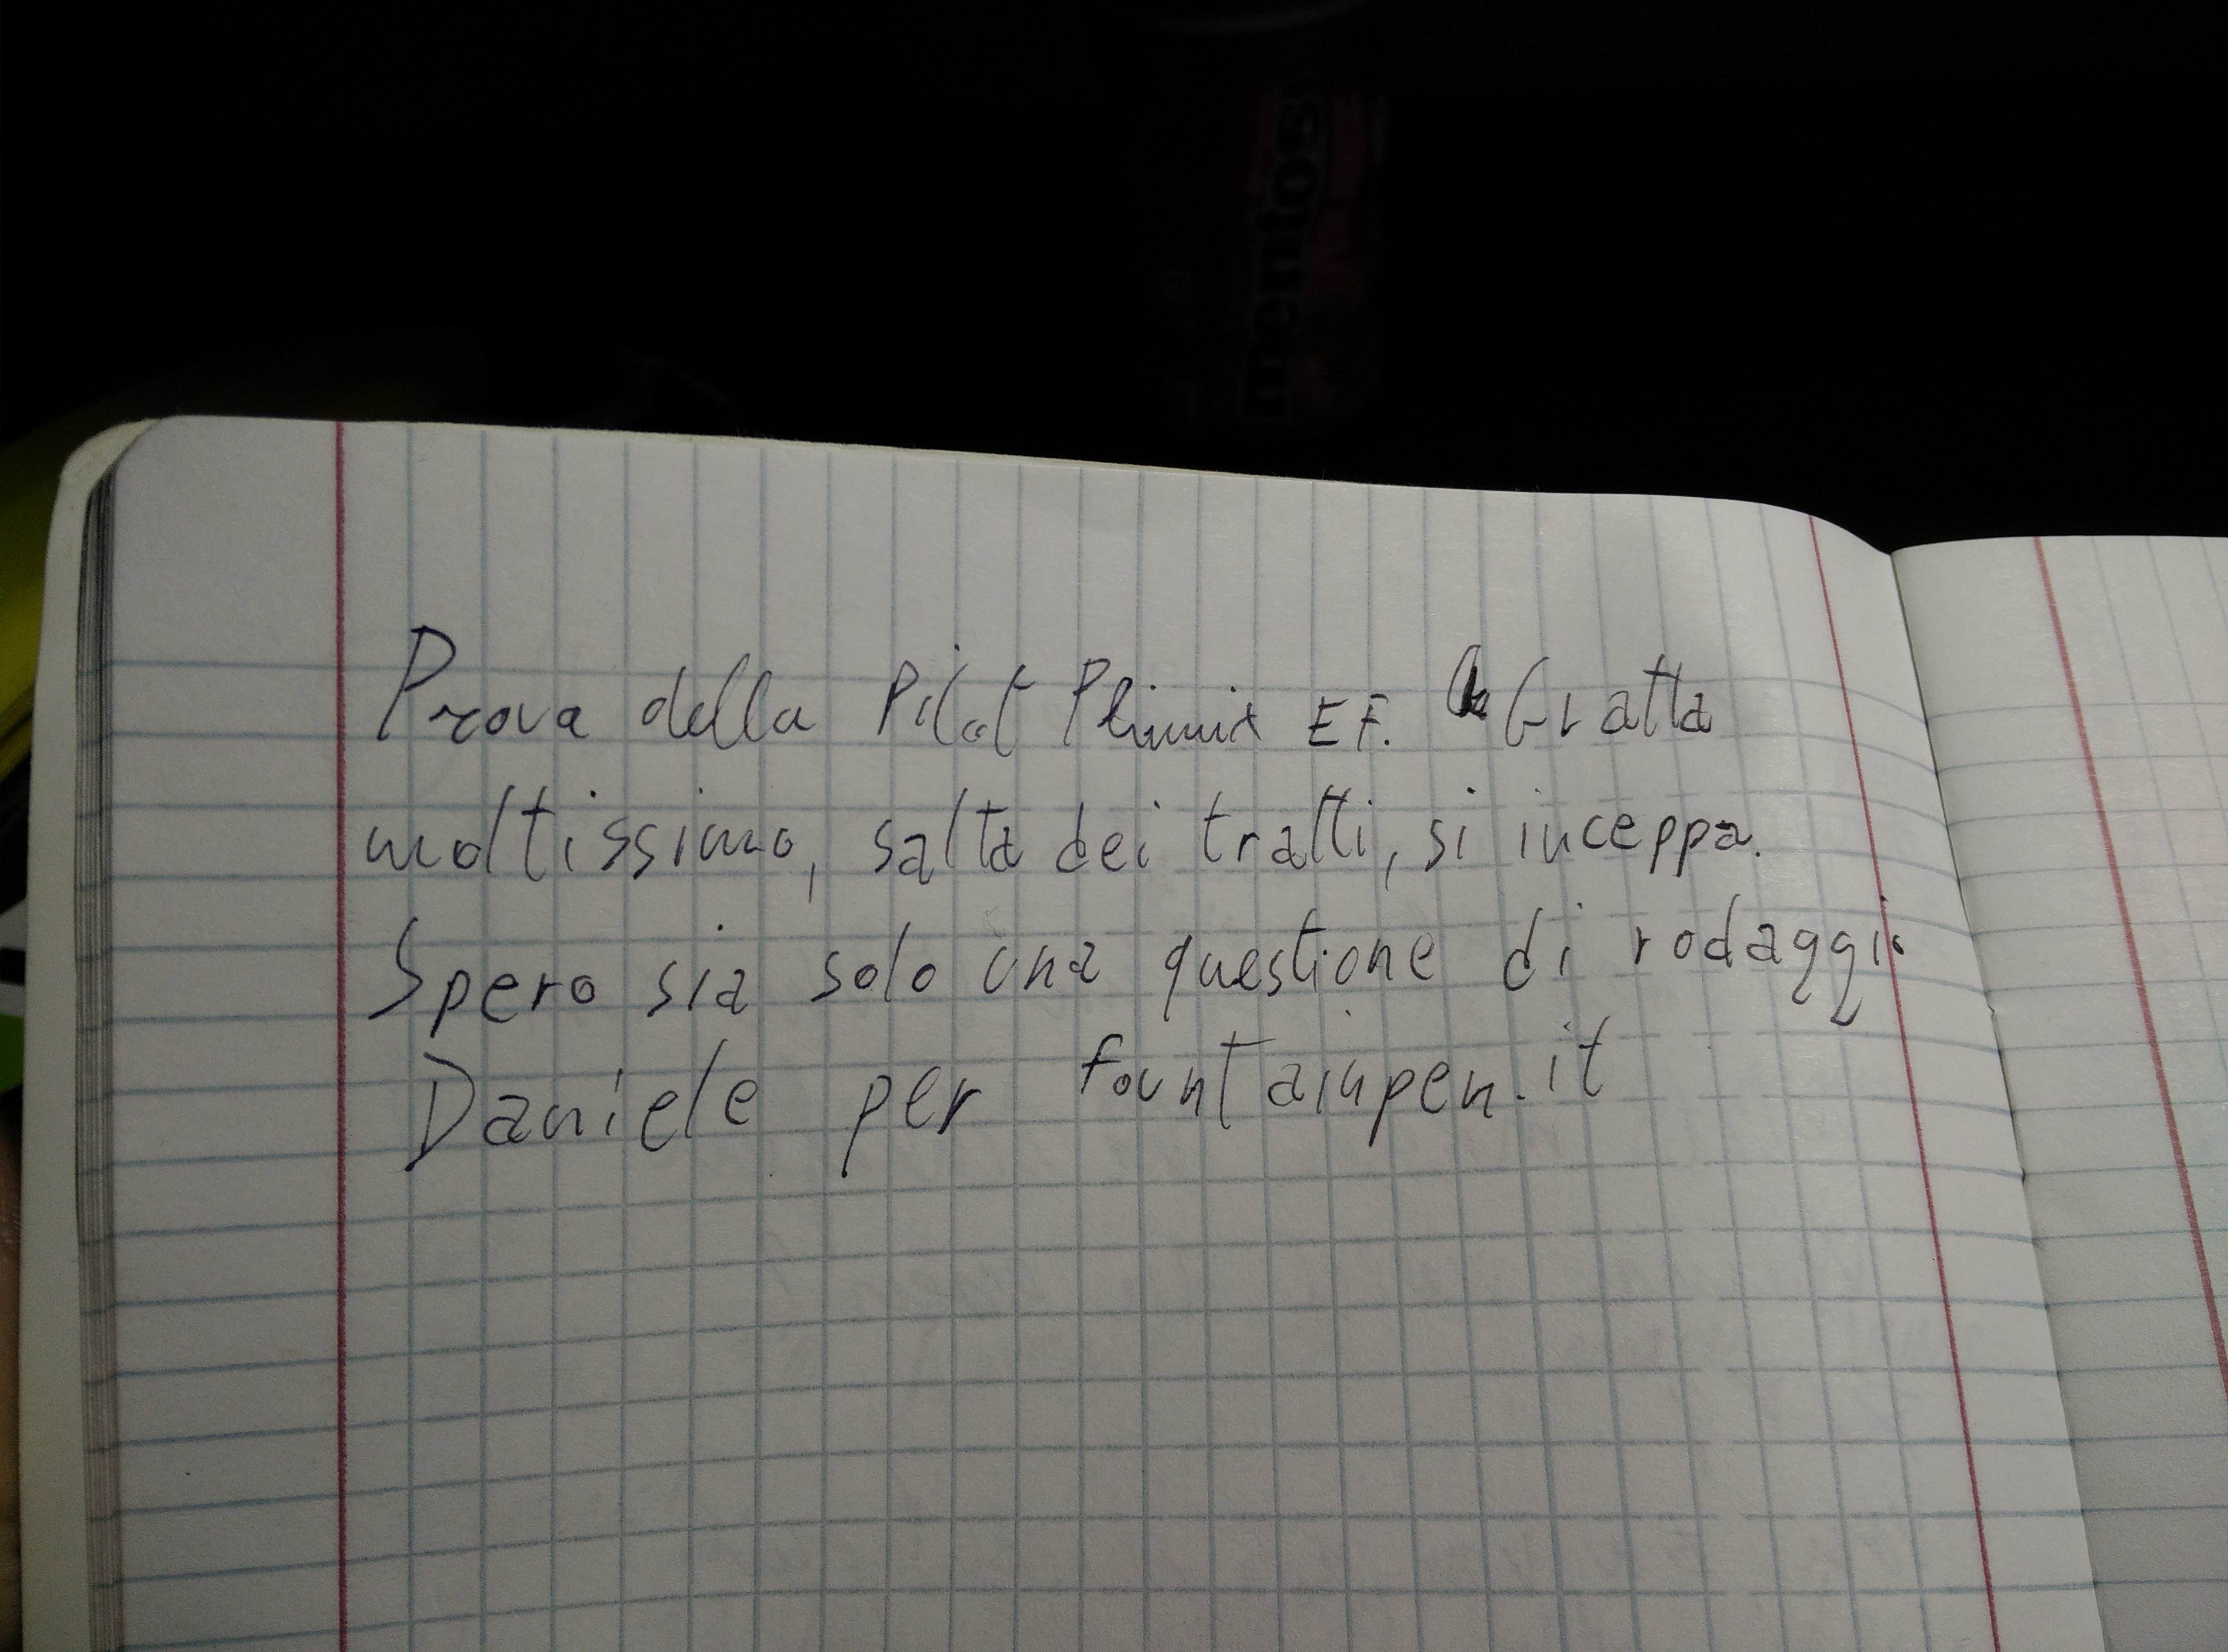 mentos
Prova della Pilot Plumix EF. Gratta
moltissimo, salta dei tratti, si inceppa.
Spero sia solo una questione di rodaggio
Daniele per fountainpen.it